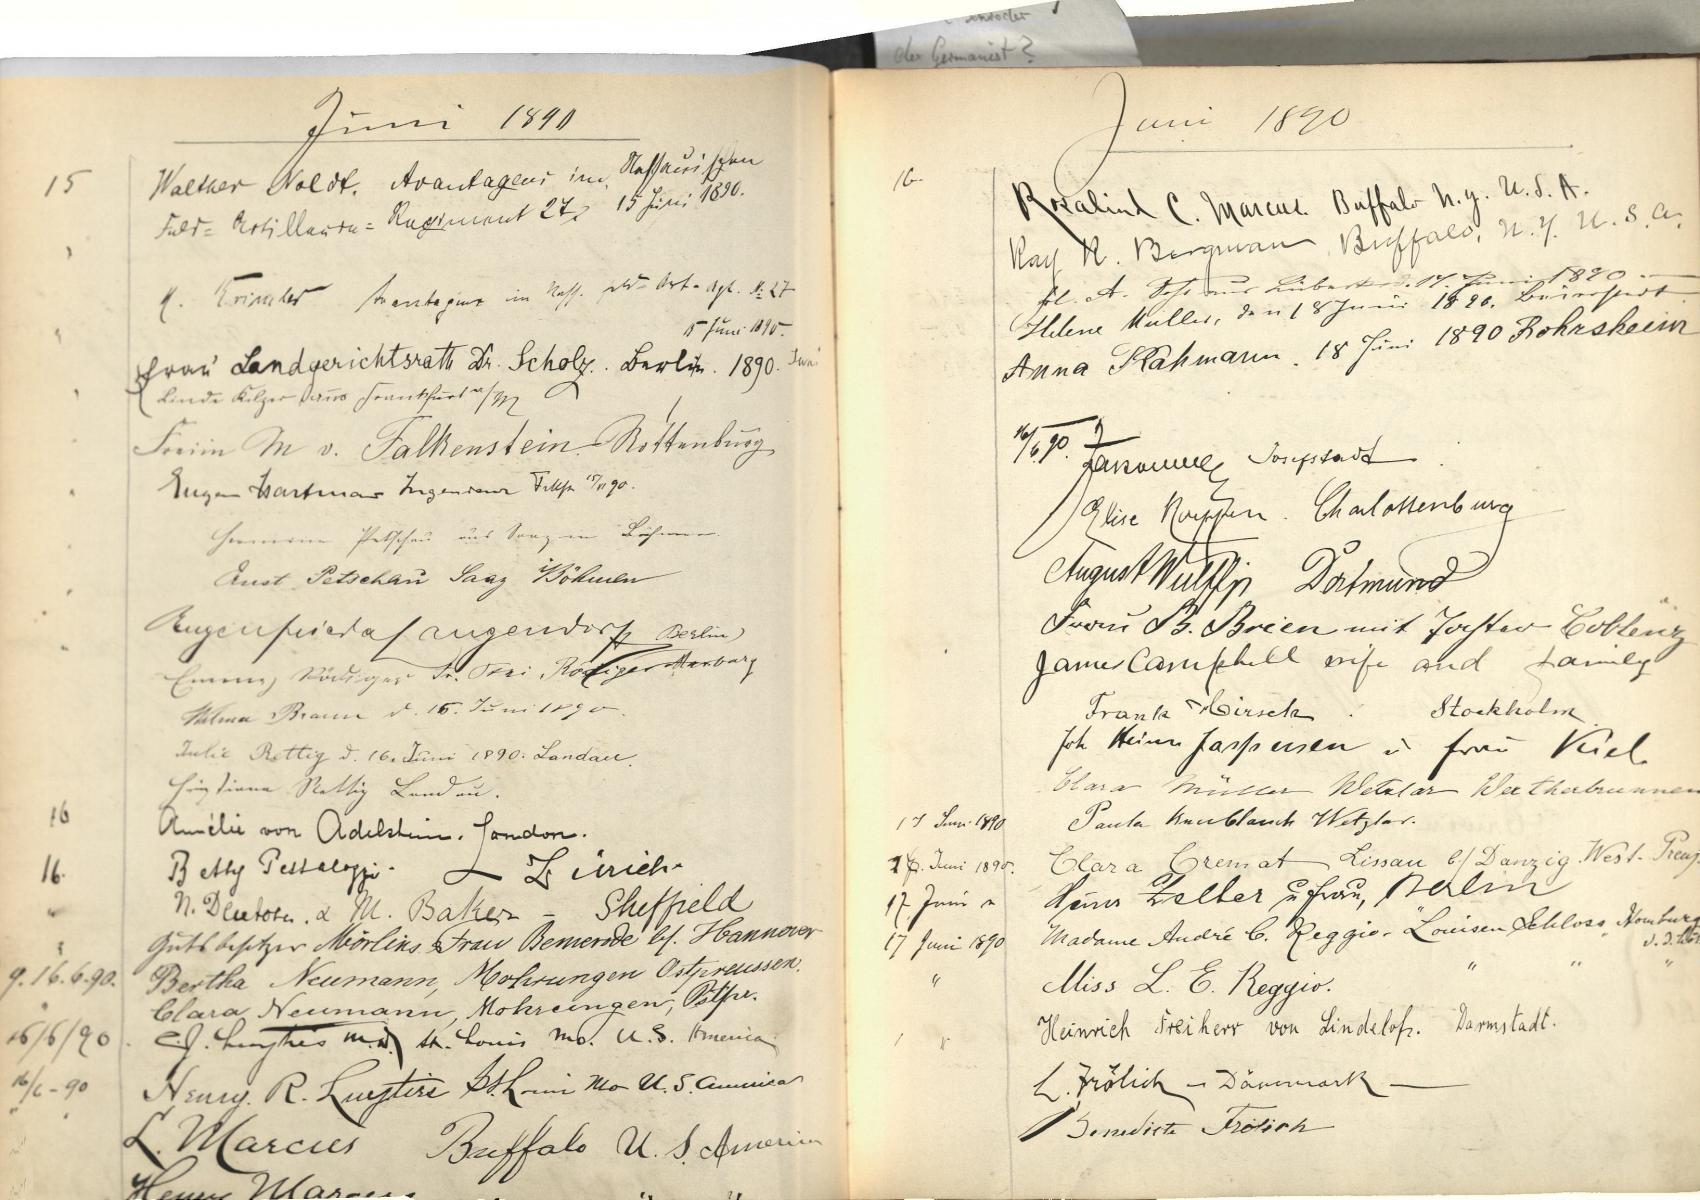 der Germanist?
Juni 1890
15 Walther Noldt. Avantageur im Nassauischen
Feld= Artillerie= Regiment 27, 15 Juni 1890.
Avantageur im Nass. Feld-Art-Rgt. No 27
15 Juni 1890.
Frau Landgerichtsrath Dr. Scholz. Berlin. 1890. Juni
Linda aus Frankfurt a/M
Freiin M v. Falkenstein Rottenburg
Eugen Hartmann Ingenieur
Hermann Petschau aus Saaz in Böhmen
Ernst Petschau Saaz Böhmen
Berlin
Rödiger
Braun d. 16. Juni 1890.
Julie Rettig d. 16. Juni 1890. Landau.
Christiane Rettig Landau.
16 Amélie von Adelstein. London.
16. Betty Pestalozzi. Zürich.
" N. & M. Baker - Sheffield
" Gutsbesitzer Mörlins & Frau Bemerode b/. Hannover
9. 16.6.90. Bertha Neumann, Mohrungen Ostpreussen.
" Clara Neumann, Mohrungen, Ostpr.
16/6/90. M.D. St. Louis Mo. U.S. America
16/6-90 Henry. R. St. Louis Mo U.S. America
L. Marcus Buffalo U.S. America
Henry Marcus " "
Juni 1890
16. Rosalind C. Marcus. Buffalo N.Y. U.S.A.
Ray R. Bergman Buffalo, N.Y. U.S.A.
Frl. A. aus Lübeck d. 17. Juni 1890
Helene Müller, den 18 Juni 1890.
Anna Klahmann. 18 Juni 1890 Rohrsheim
16/6 90. Josefstadt
Elise Koeppen. Charlottenburg
August Dortmund
Frau B. Brien mit Tochter Coblenz
James Campbell wife and family
Frank Hirsch. Stockholm
Joh Heinr Jaspersen u frau Kiel
Clara Müller Wetzlar Wertherbrunnen
17 Juni 1890 Paula Knoblauch Wetzlar.
Juni 1890. Clara Cremat Lissau b/Danzig West-Preuß.
17 Juni " Hans Zelter u frau, Berlin
17 Juni 1890 Madame André C. Reggio. "Louisen Schloss" Homburg
v.d. Höh
" Miss L. E. Reggio. " " "
" Heinrich Freiherr von Lindelof. Darmstadt.
L. Frölich - Dänemark
Benedicte Frölich